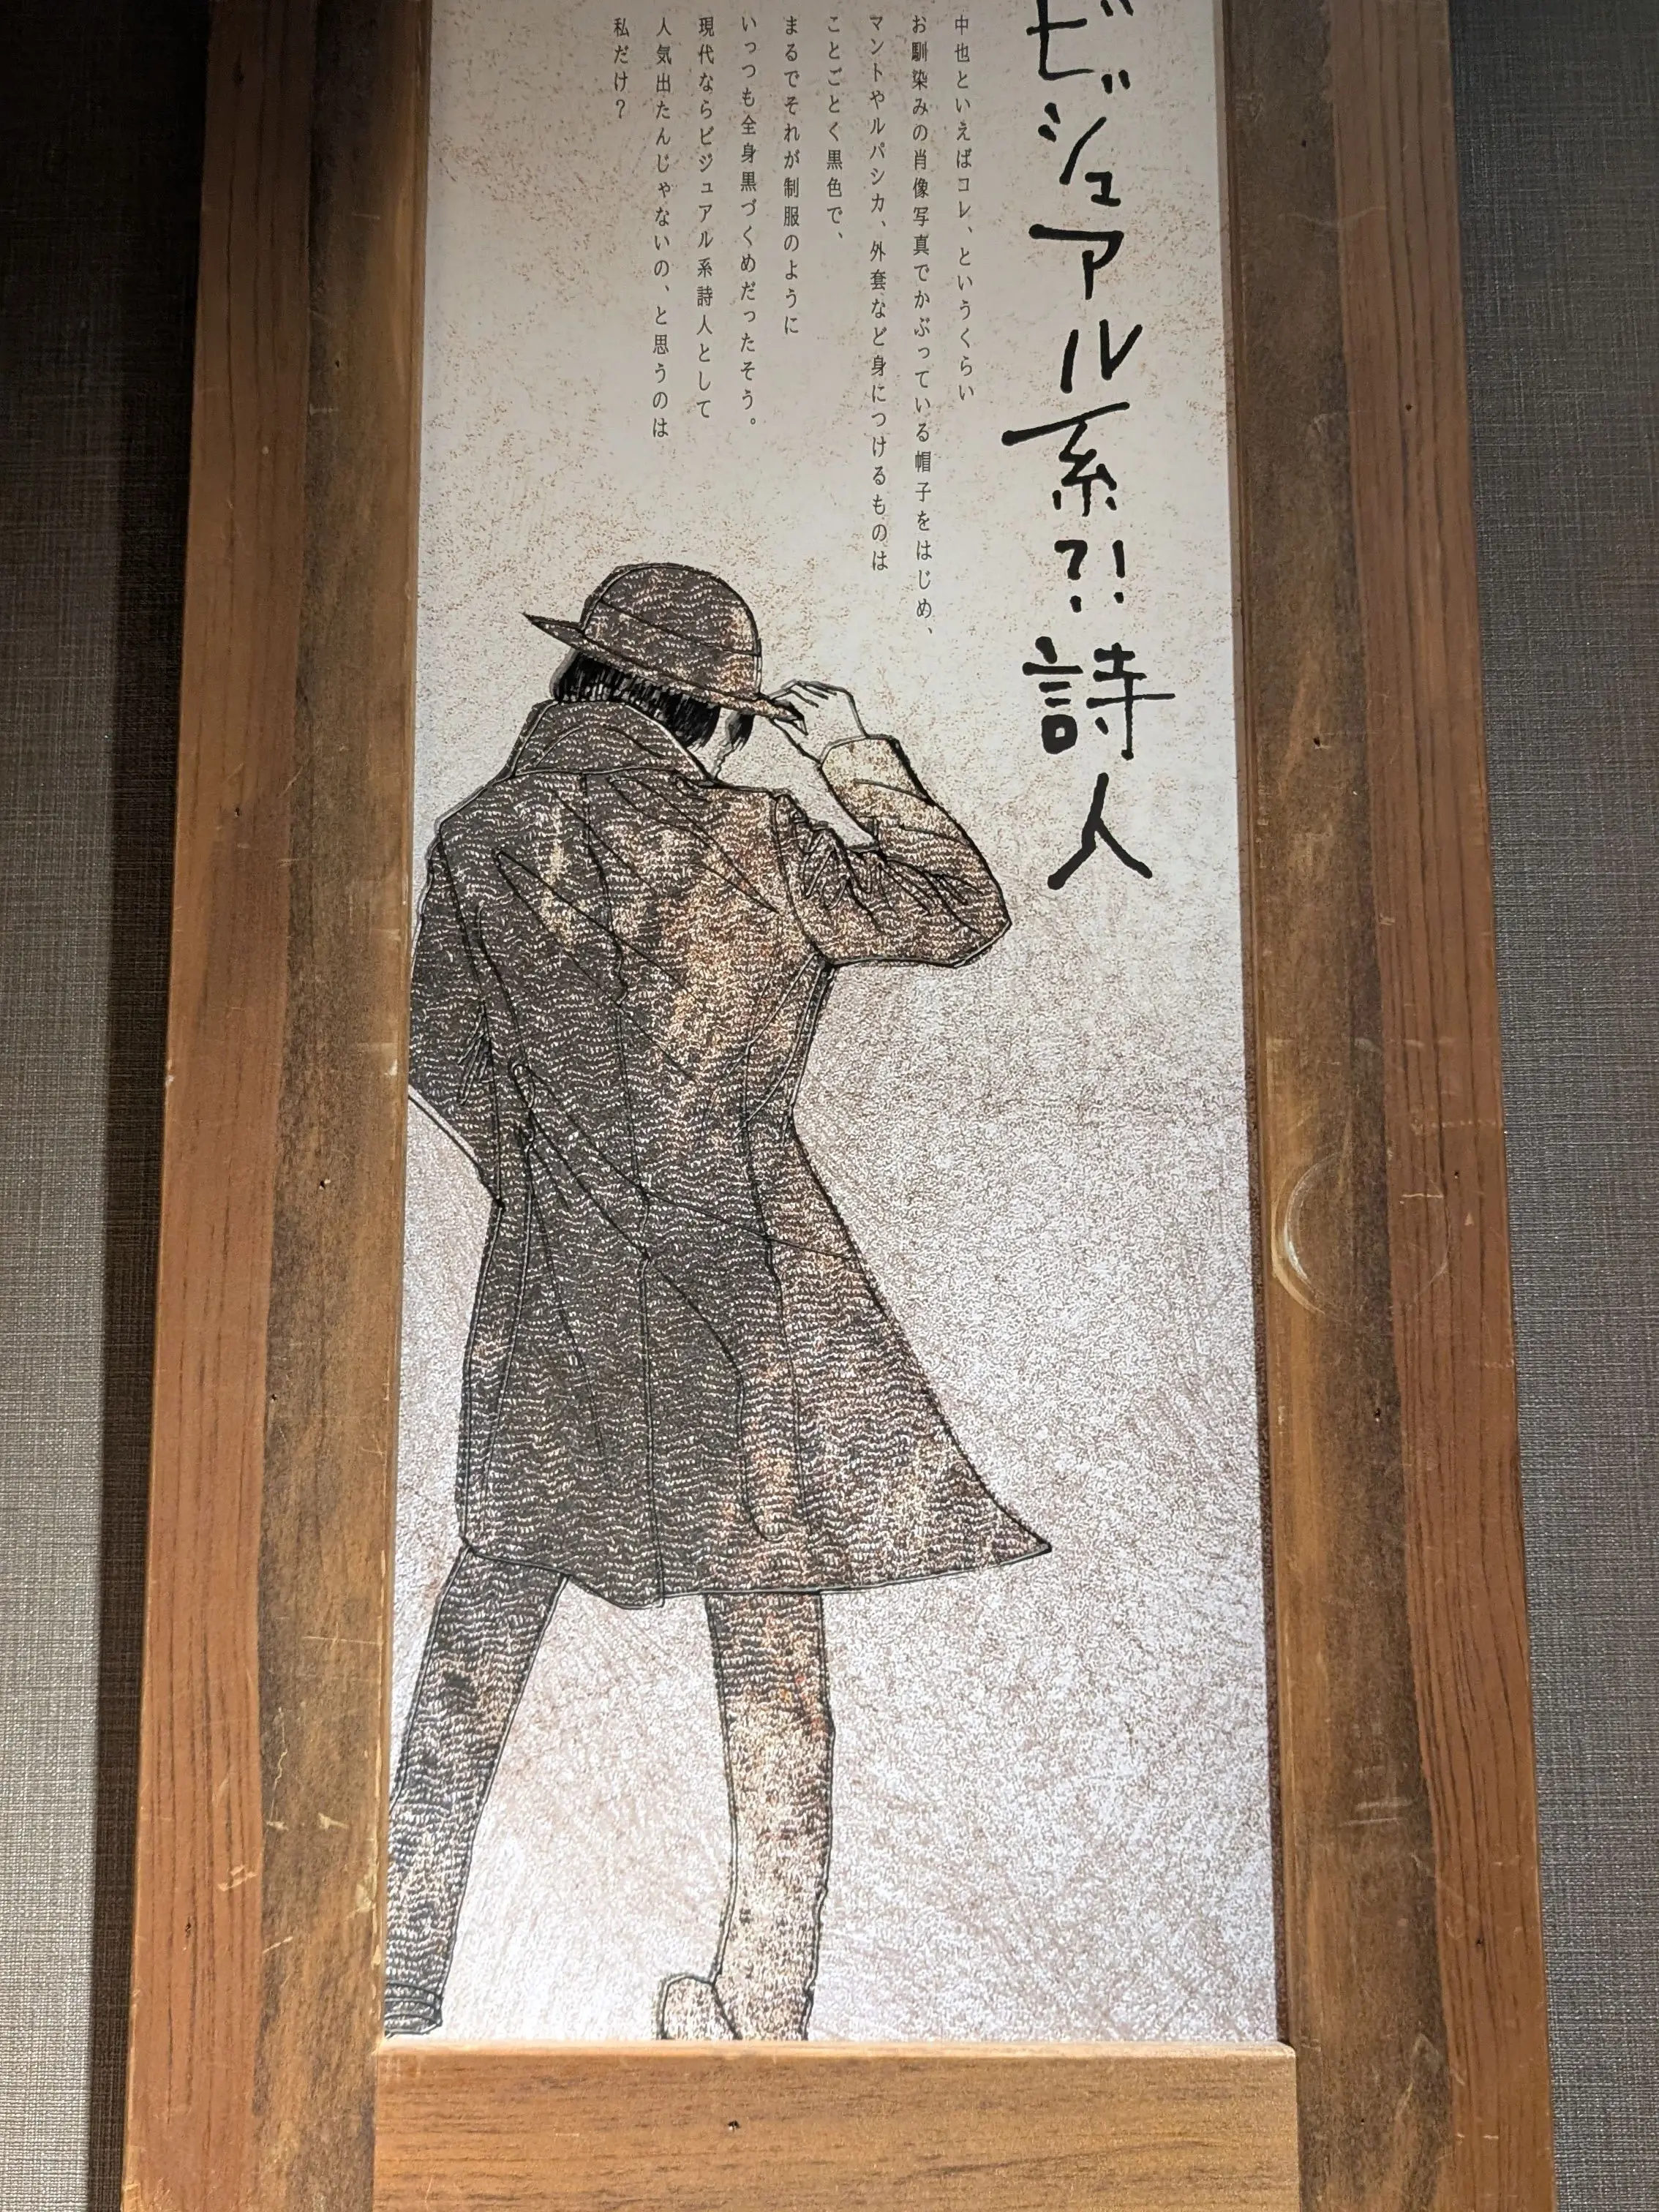 ビジュアル系?!詩人
中也といえばコレ、というくらい
お馴染みの肖像写真でかぶっている帽子をはじめ、
マントやルパシカ、外套など身につけるものは
ことごとく黒色で、
まるでそれが制服のように
いっつも全身黒づくめだったそう。
現代ならビジュアル系詩人として
人気出たんじゃないの、と思うのは
私だけ?